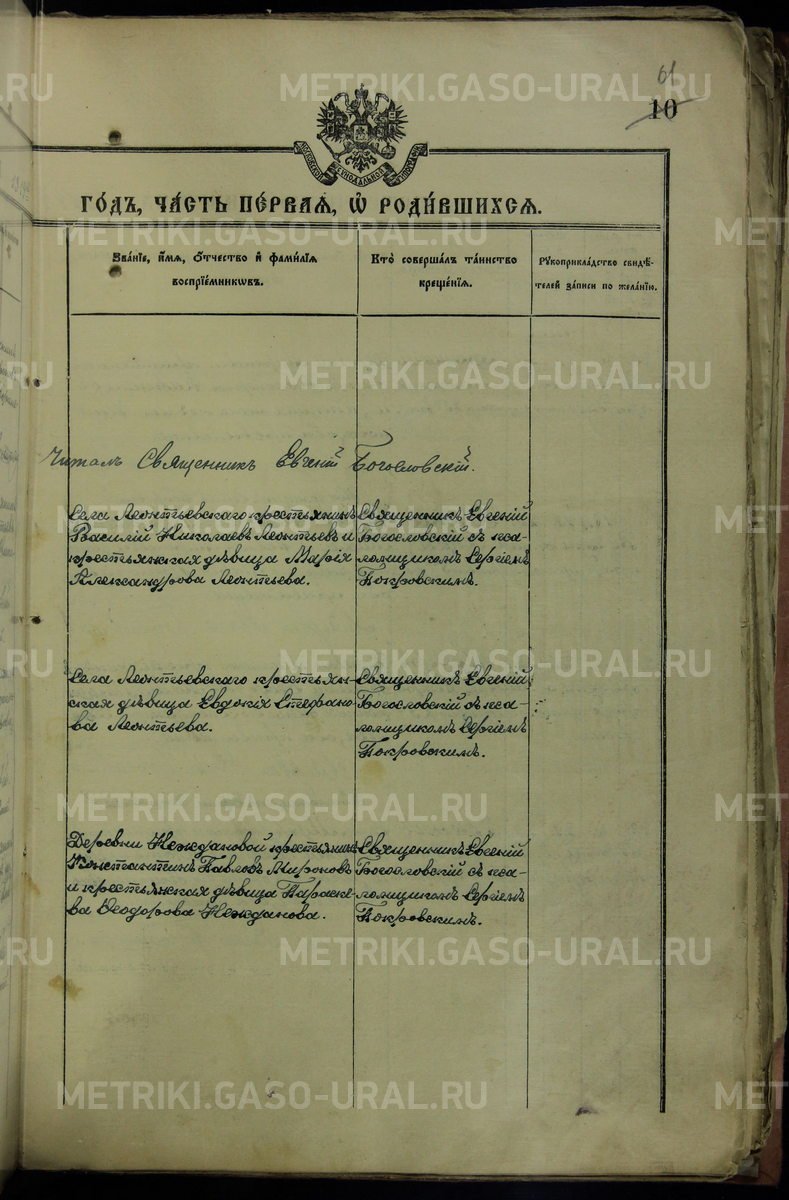 61
10
МОСКОВСКОЙ СѴНОДАЛЬНОЙ ТИПОГРАФІИ
ГО́ДЪ, ЧА́СТЬ ПЕ́РВАѦ, Ѡ҆ РОДИ́ВШИХСѦ.
Зва́нїе, и҆́мѧ, ѻ҆́тчество и҆ фами́лїѧ
воспрїе́мникѡвъ.
Кто̀ соверша́лъ та́инство
креще́нїѧ.
Рꙋкоприкла́дство свидѣ́-
телей за́писи по жела́нїю.
Читалъ Священникъ Евгеній Богословскій.
Села Леонтьевскаго крестьянинъ
Василій Николаевъ Леонтьевъ и
крестьянская дѣвица Марія
Александрова Леонтьева.
Священникъ Евгеній
Богословскій съ пса-
ломщикомъ Сергіемъ
Покровскимъ.
Села Леонтьевскаго крестьян-
ская дѣвица Евдокія Стефано-
ва Леонтьева.
Священникъ Евгеній
Богословскій съ пса-
ломщикомъ Сергіемъ
Покровскимъ.
Деревни Неждановой крестьянинъ
Константинъ Павловъ Мироновъ
и крестьянская дѣвица Параске-
ва Ѳеодорова Нежданова.
Священникъ Евгеній
Богословскій съ пса-
ломщикомъ Сергіемъ
Покровскимъ.
METRIKI.GASO-URAL.RU